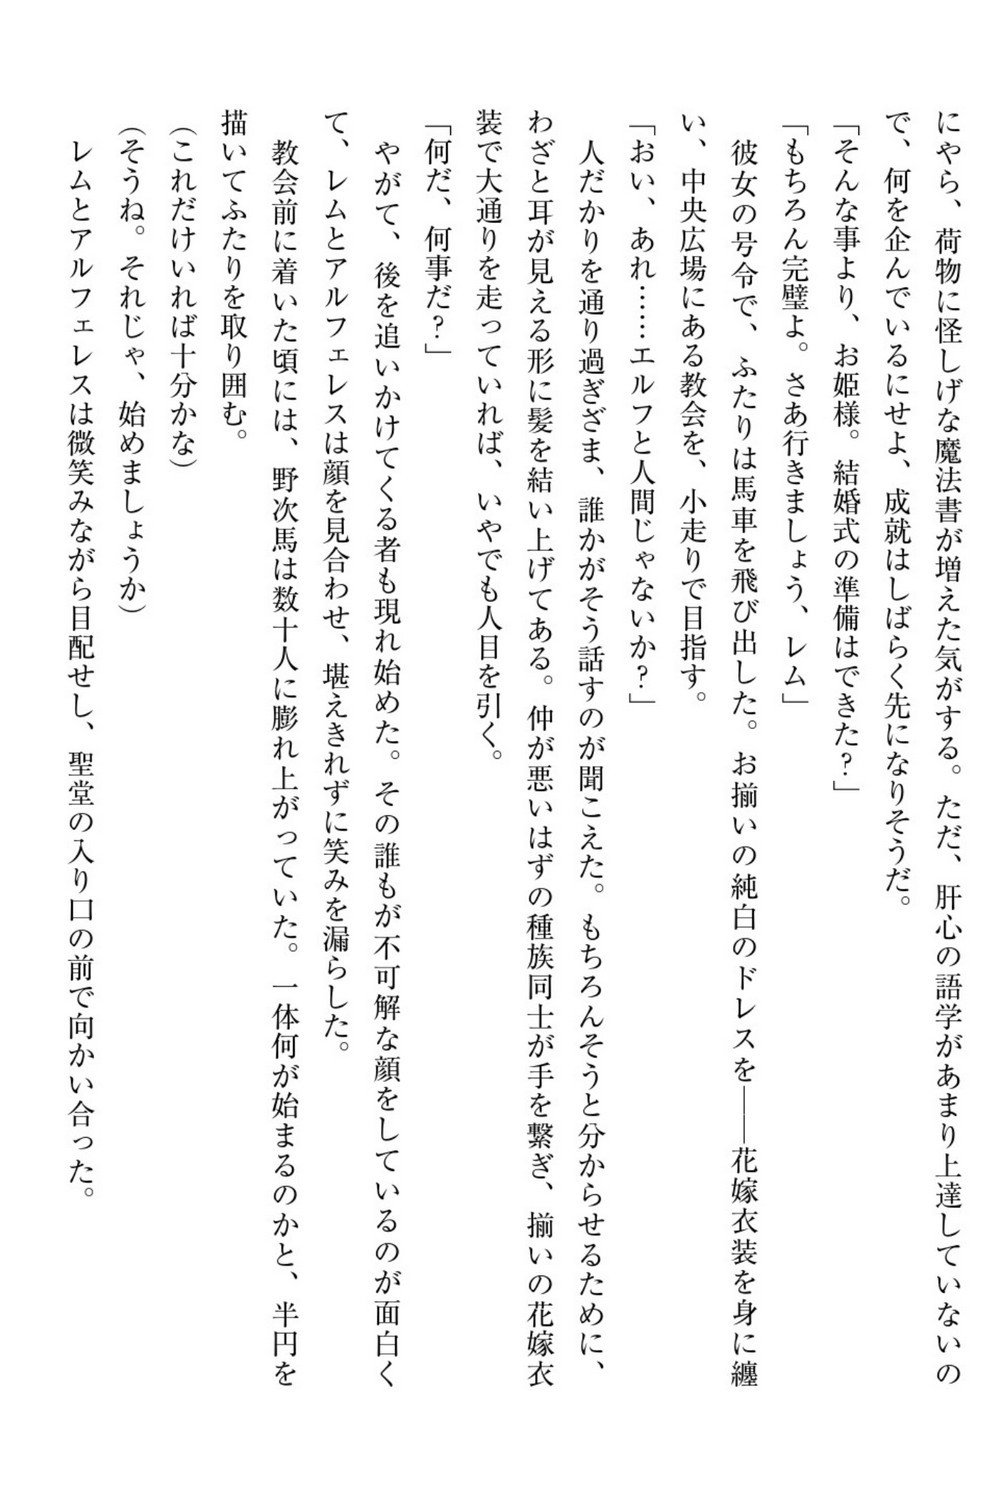 にやら、荷物に怪しげな魔法書が増えた気がする。ただ、肝心の語学があまり上達していないの
で、何を企んでいるにせよ、成就はしばらく先になりそうだ。
「そんな事より、お姫様。結婚式の準備はできた？」
「もちろん完璧よ。さあ行きましょう、レム」
　彼女の号令で、ふたりは馬車を飛び出した。お揃いの純白のドレスを――花嫁衣装を身に纏
い、中央広場にある教会を、小走りで目指す。
「おい、あれ……エルフと人間じゃないか？」
　人だかりを通り過ぎざま、誰かがそう話すのが聞こえた。もちろんそうと分からせるために、
わざと耳が見える形に髪を結い上げてある。仲が悪いはずの種族同士が手を繋ぎ、揃いの花嫁衣
装で大通りを走っていれば、いやでも人目を引く。
「何だ、何事だ？」
　やがて、後を追いかけてくる者も現れ始めた。その誰もが不可解な顔をしているのが面白く
て、レムとアルフェレスは顔を見合わせ、堪えきれずに笑みを漏らした。
　教会前に着いた頃には、野次馬は数十人に膨れ上がっていた。一体何が始まるのかと、半円を
描いてふたりを取り囲む。
（これだけいれば十分かな）
（そうね。それじゃ、始めましょうか）
　レムとアルフェレスは微笑みながら目配せし、聖堂の入り口の前で向かい合った。